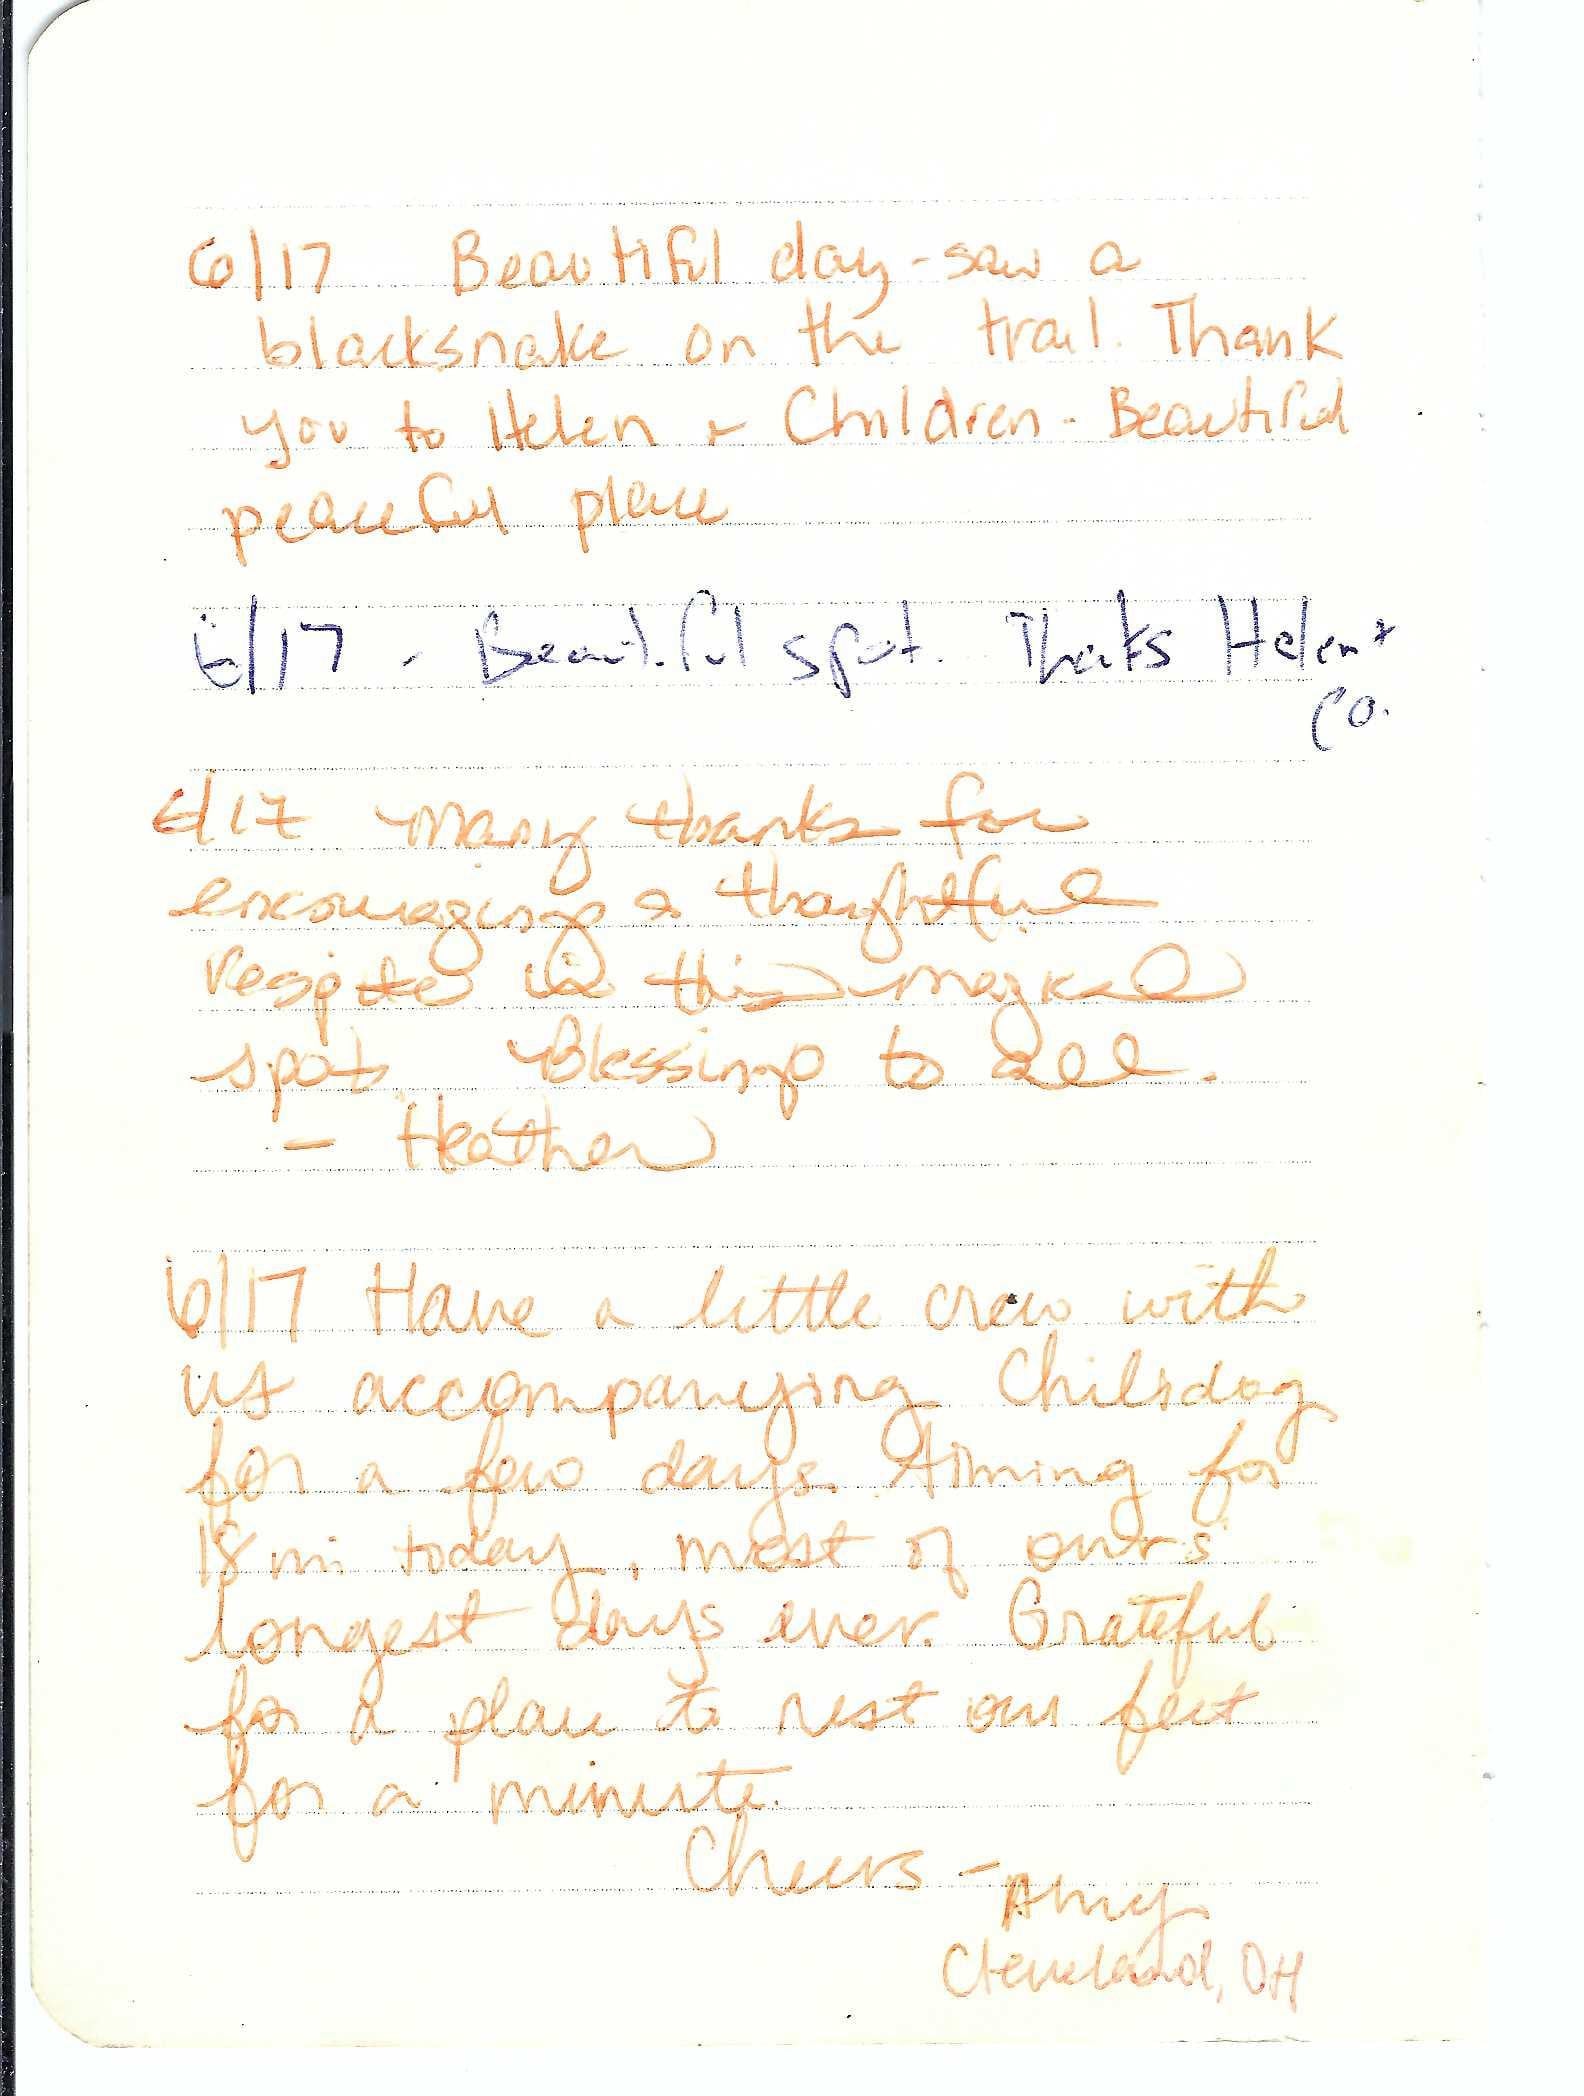 6/17 Beautiful day - saw a
blacksnake on the trail. Thank
you to Helen + Children - Beautiful
peaceful place
6/17 - Beautiful spot. Thanks Helen +
Co.
6/17 Many thanks for
encouraging & thoughtful
respite in this magical
spot. Blessings to all.
- Heather
6/17 Have a little crew with
us accompanying Chilidog
for a few days. Aiming for
18 mi today, most of ours
longest days ever. Grateful
for a place to rest our feet
for a minute.
Cheers - Amy
Cleveland, OH